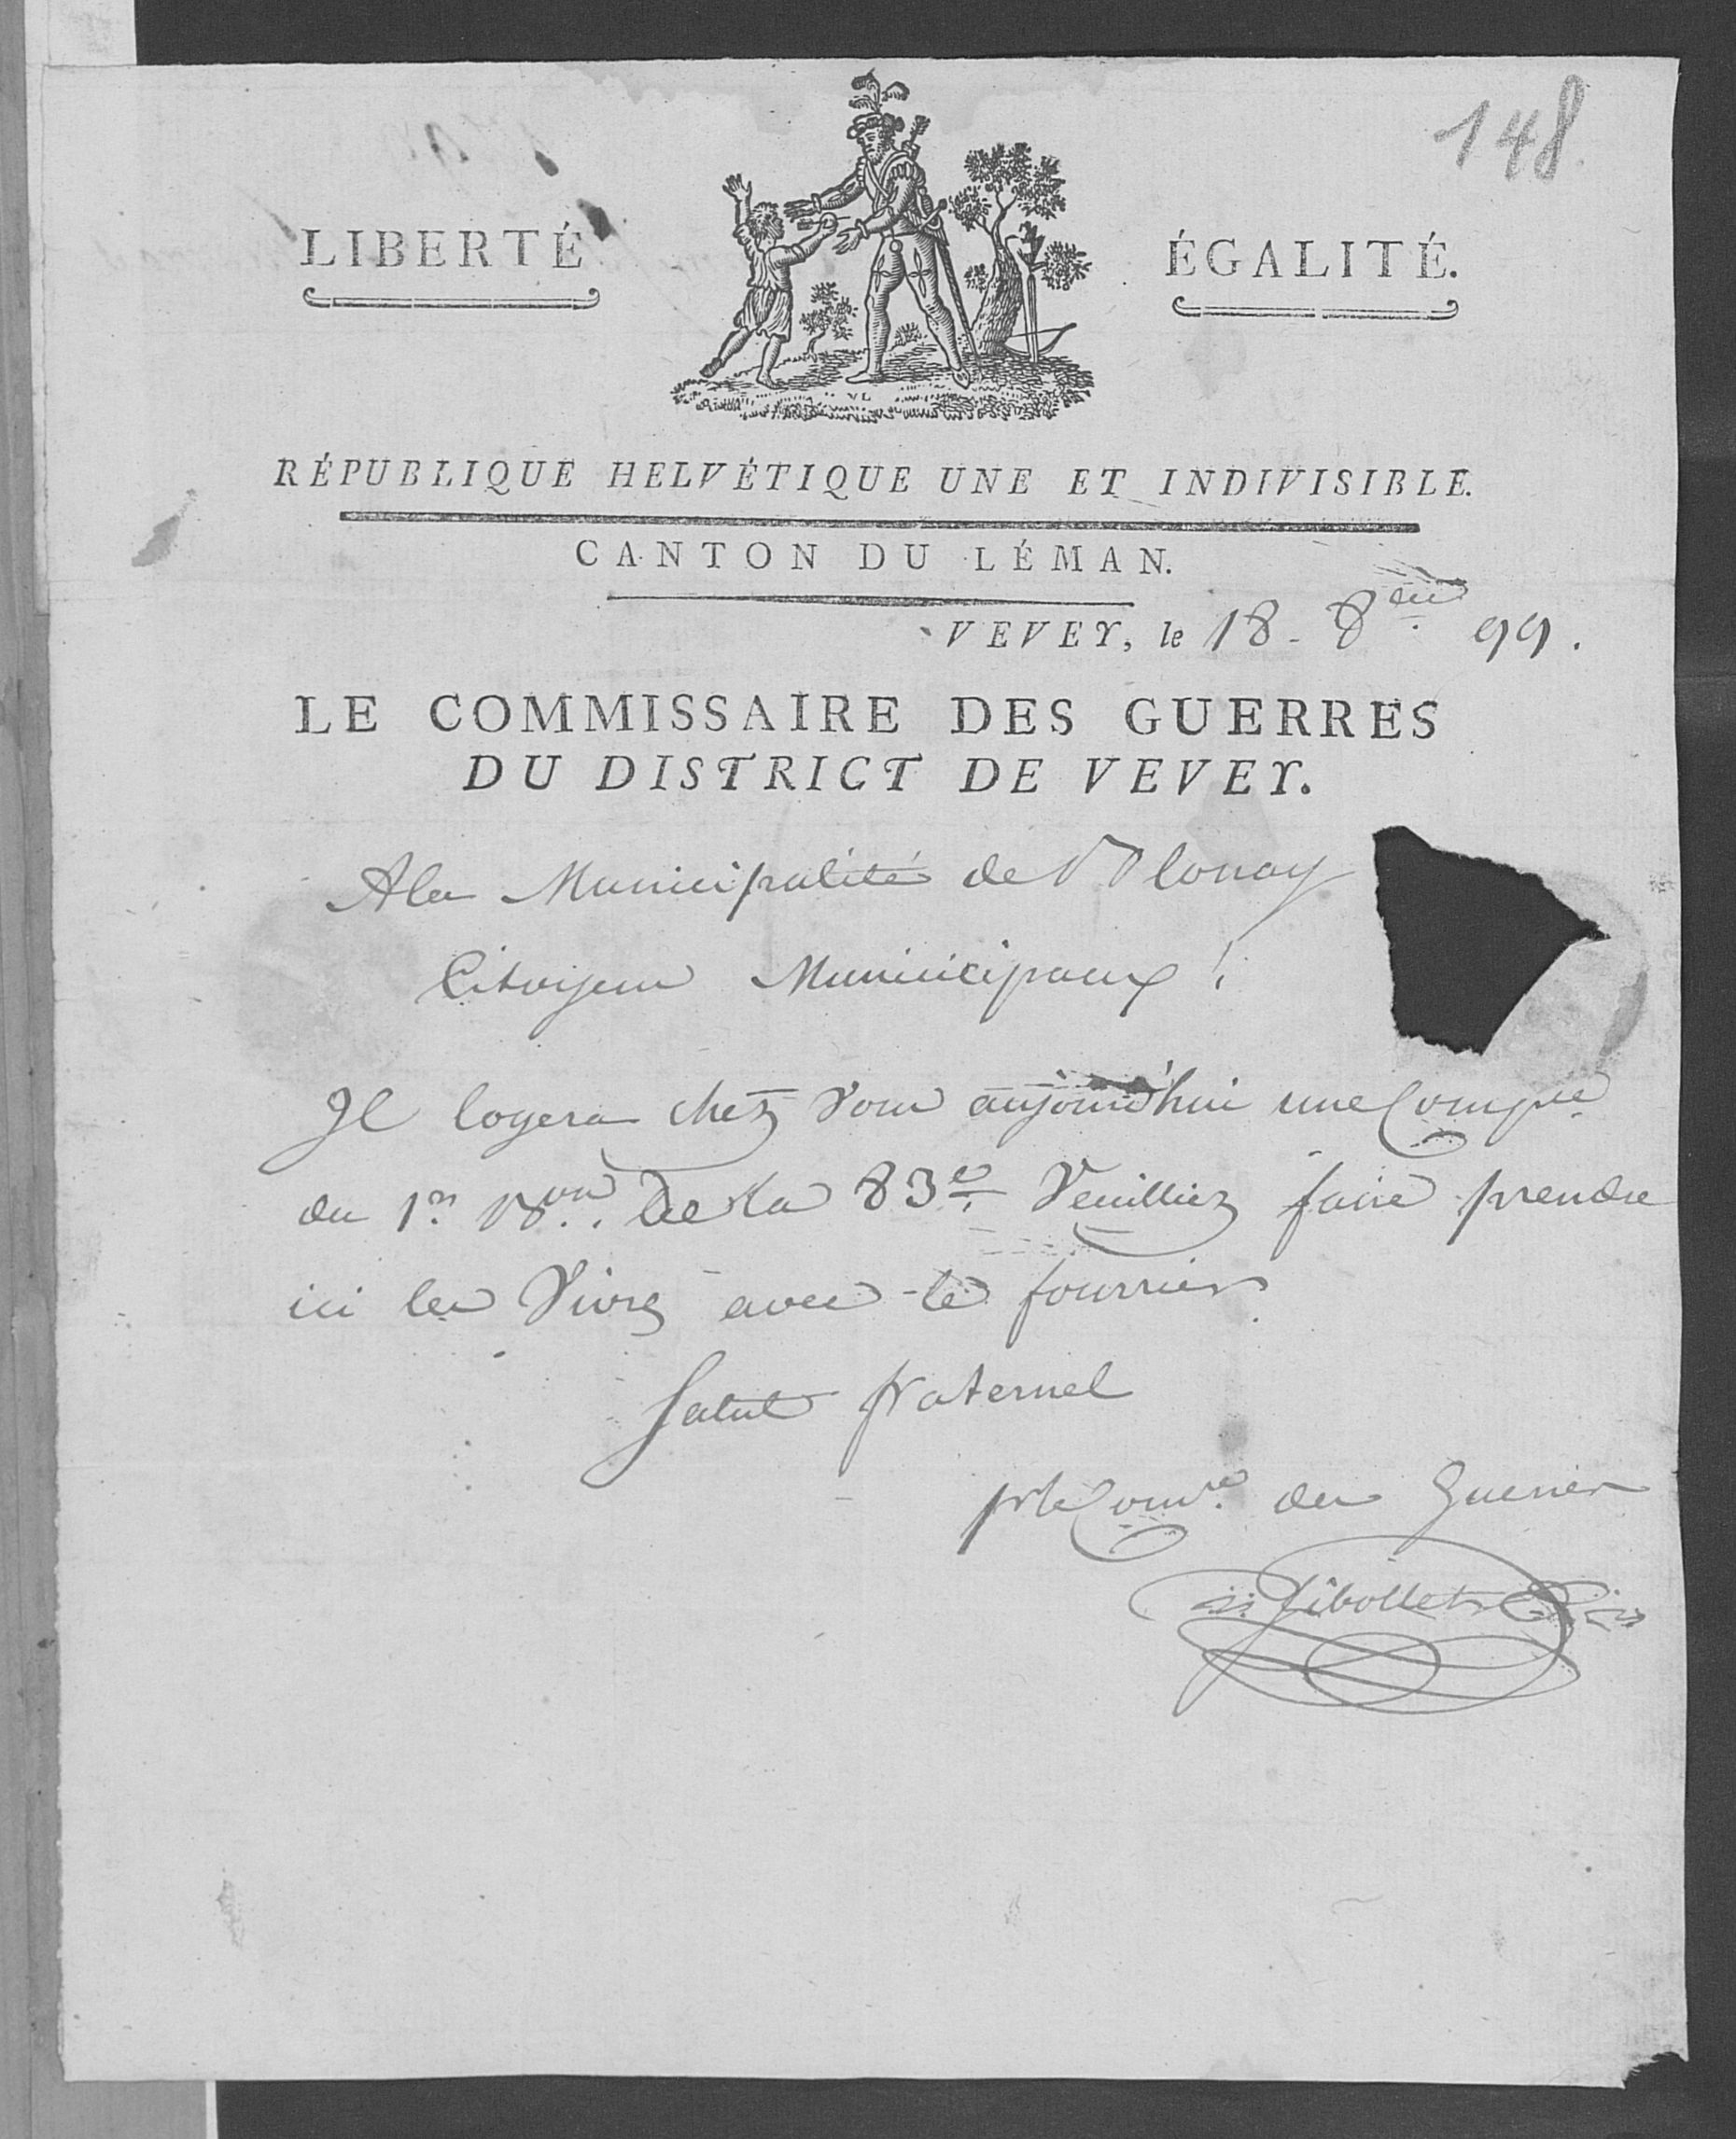 148.
LIBERTÉ ÉGALITÉ.
RÉPUBLIQUE HELVÉTIQUE UNE ET INDIVISIBLE.
CANTON DU LÉMAN.
VEVEY, le 18. 8bre 99.
LE COMMISSAIRE DES GUERRES
DU DISTRICT DE VEVEY.
A la Municipalité de Blonay
Citoyens Municicipaux !
Il logera chez Vous aujourd'hui une Compie
du 1er Bon. de la 83e. Veuilliez faire prendre
ici les Vivres avec le fourrier
Salut fraternel
pr le Comre. des Guerres